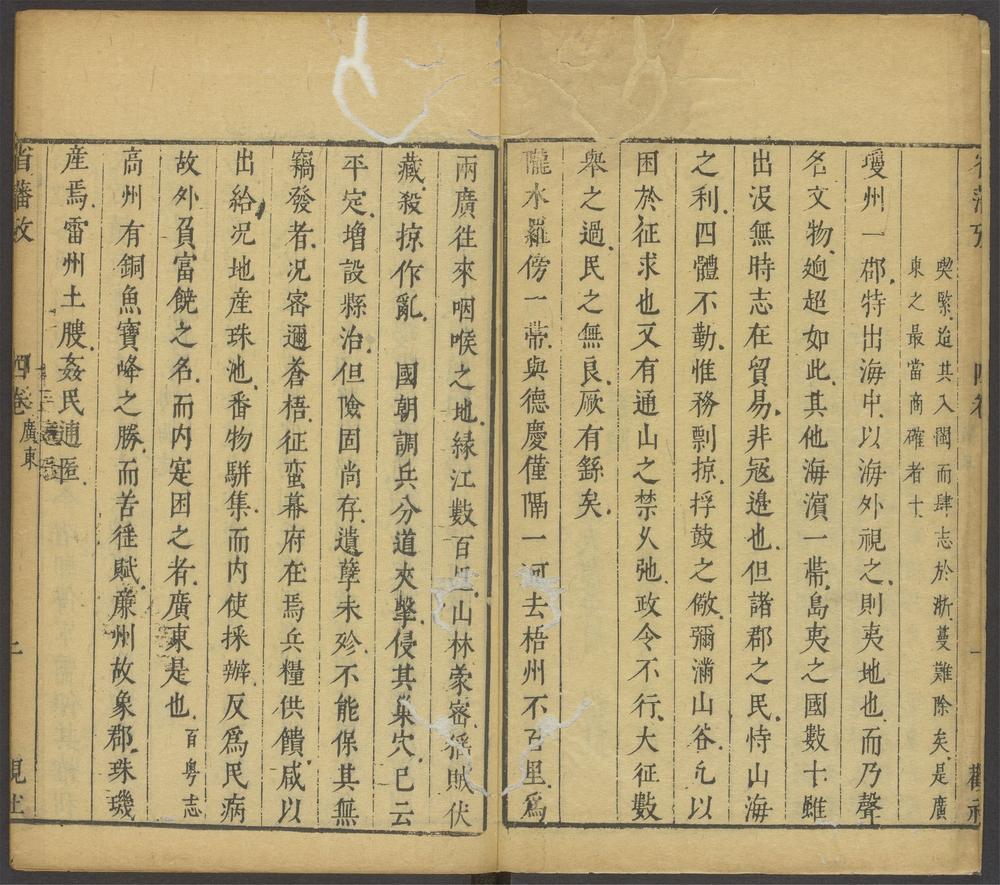 喫緊迨其入閩而肆志於浙蔓難除矣是廣
東之最當商確者十
瓊州一郡特出海中以海外視之則夷地也而乃聲
名文物逈超如此其他海濱一帶島夷之國數十雖
出没無時志在貿易非寇邉也但諸郡之民恃山海
之利四體不勤惟務剽掠捊鼓之儆彌滿山谷凢以
困於征求也又有通山之禁乆弛政令不行大征數
舉之過民之無良厥有繇矣
隴水羅傍一帶與德慶僅隔一河去梧州不百里爲
兩廣往來咽喉之地縁江數百里山林蒙密猺賊伏
藏殺掠作亂 國朝調兵分道夾擊侵其巢穴已云
平定增設縣治但險固尚存遺孽未殄不能保其無
竊發者况密邇蒼梧征蛮幕府在焉兵糧供饋咸以
出給况地産珠池畨物駢集而内使採辦反爲民病
故外負富饒之名而内寔困之者廣東是也 百粵志
高州有銅魚寶峰之勝而苦徭賦亷州故象郡珠璣
産焉雷州土腴姦民逋匿
省藩攷 四卷 廣東